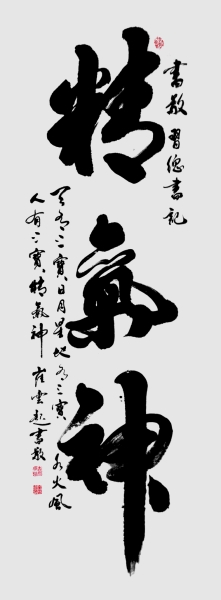 精氣神
書敬習總書記
天有三寶日月星地有三寶水火風
人有三寶精氣神 崔雲超書敬